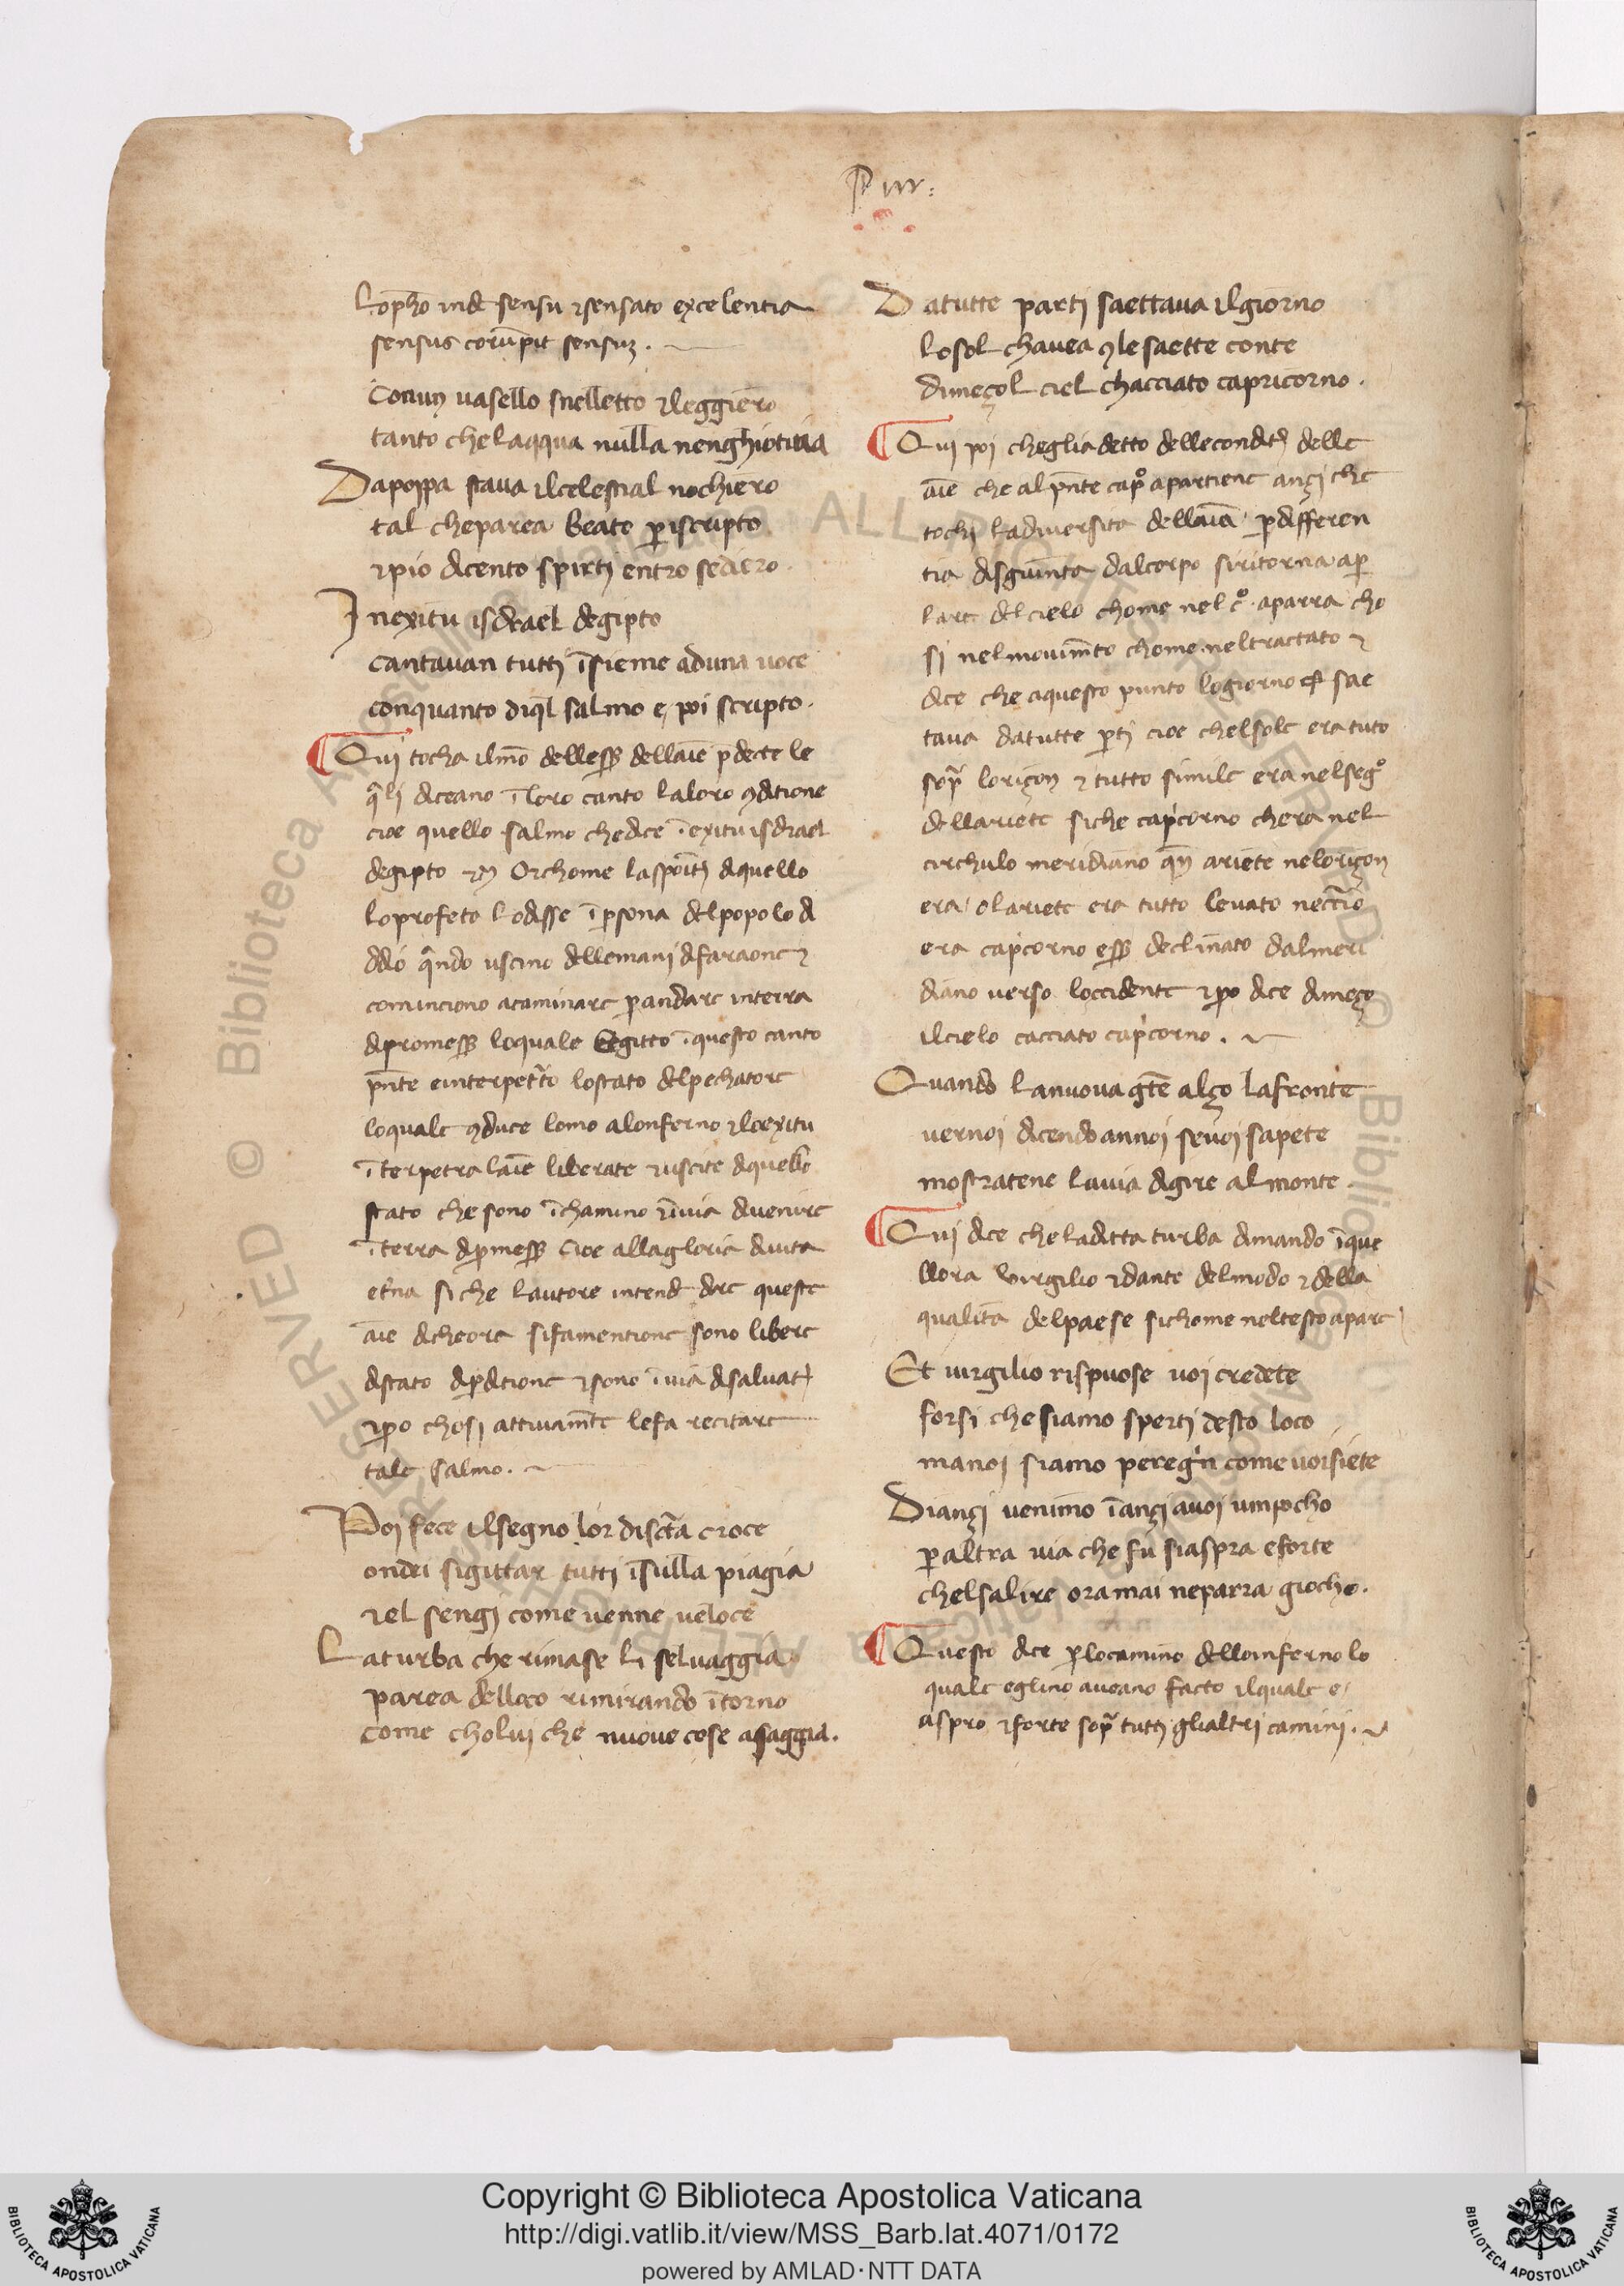 Pur:
Lopħo inđ sensu ⁊sensato excelentia
sensus corūpit sensuʒ.
Conun vasello snelletto ⁊leggiero
tanto chelaqqua nulla nenghiottiua
Dapoppa staua ilcelestial nochiero
tal cheparea beato ꝑiscripto
⁊piò dicento spirti entro sediero.
Inexitu isdrael degipto
cantauan tutti īsieme aduna uoce
conquanto diq̄l salmo e poi scripto.
Qui tocha ilmō
q̄li diceano īloro canto laloro ꝯditione
cioe quello salmo chedice īexitu isdrael
degipto
loprofeta lodisse īpersona delpopolo di
ddio q̄ndo uscino dellemani difaraone ⁊
cominciono acaminare ꝑandare interra
dipromess̄ loquale Egitto īquesto canto
pn̄te einterpetr̄to lostato delpechatore
loquale ꝯduce lomo alonferno ⁊loexitu
īterpetra laīe liberate ⁊uscite diquello
stato che sono īchamino ⁊īuia diuenire
īterra diꝓmess̄ cioe allagloria diuita
etn̄a siche lautore intend dire queste
aīe dicheora sifamentione sono libere
distato diꝑditione ⁊sono īuia disaluat̄
⁊ꝑo chosi attiuamēte lefa recitare
tale salmo.
Poi fece ilsegno lor disc̄ta croce
ondei sigittar tutti īsulla piagia
⁊el sengi come uenne ueloce
Laturba che rimase li seluaggia
parea delloco rimirando ītorno
come cholui che nuoue cose asaggia.
Datutte parti saettaua ilgiorno
losol chauea ꝯle saette conte
dimeçol ciel chacciato capricorno.
Qui poi cheglia detto dellecondit̄ delle
aīe che alpn̄te cap̊ apartiene ançi che
tochi ladiuersita dellaīa ꝑdifferen
tia disgiunta dalcorpo siritorna apar
lare del cielo chome nel c̊. aparra cho
si nelmouimēto chome neltractato ⁊
dice che aquesto punto logiorno sae
taua datutte ꝑti cioe chelsole era tuto
sop̄ loriçon ⁊ tutto simile era nelsegᵒ
dellariete siche cap'corno chera nel
circhulo meridiano qn̄ ariete neloriçon
era olariete era tutto leuato necc̄io
era cap'corno ess̄ declīnato dalmeri
diano uerso loccidente ⁊ꝑo dice dimeço
ilcielo cacciato cap'corno.
Quando lanuoua gēte alço lafronte
uernoi dicendo annoi seuoi sapete
mostratene lauia digire al monte
Qui dice cheladitta turba dimando īque
llora virgilio ⁊dante delmodo ⁊della
qualita delpaese sichome neltesto apare
Et uirgilio rispuose uoi credete
forsi che siamo sperti desto loco
manoi siamo peregn̄ come uoisiete
Diançi uenimo īançi auoi umpocho
ꝑaltra uia che fu siaspra eforte
chelsalire oramai neparra giocho.
Questo dice ꝑlocamino delloinferno lo
quale eglino aueano facto ilquale e
aspro ⁊forte sop̄ tutti glialtri camini.
Copyright © Biblioteca Apostolica Vaticana
http://digi.vatlib.it/view/MSS_Barb.lat.4071/0172
powered by AMLAD·NTT DATA
BIBLIOTECA APOSTOLICA VATICANA
BIBLIOTECA APOSTOLICA VATICANA